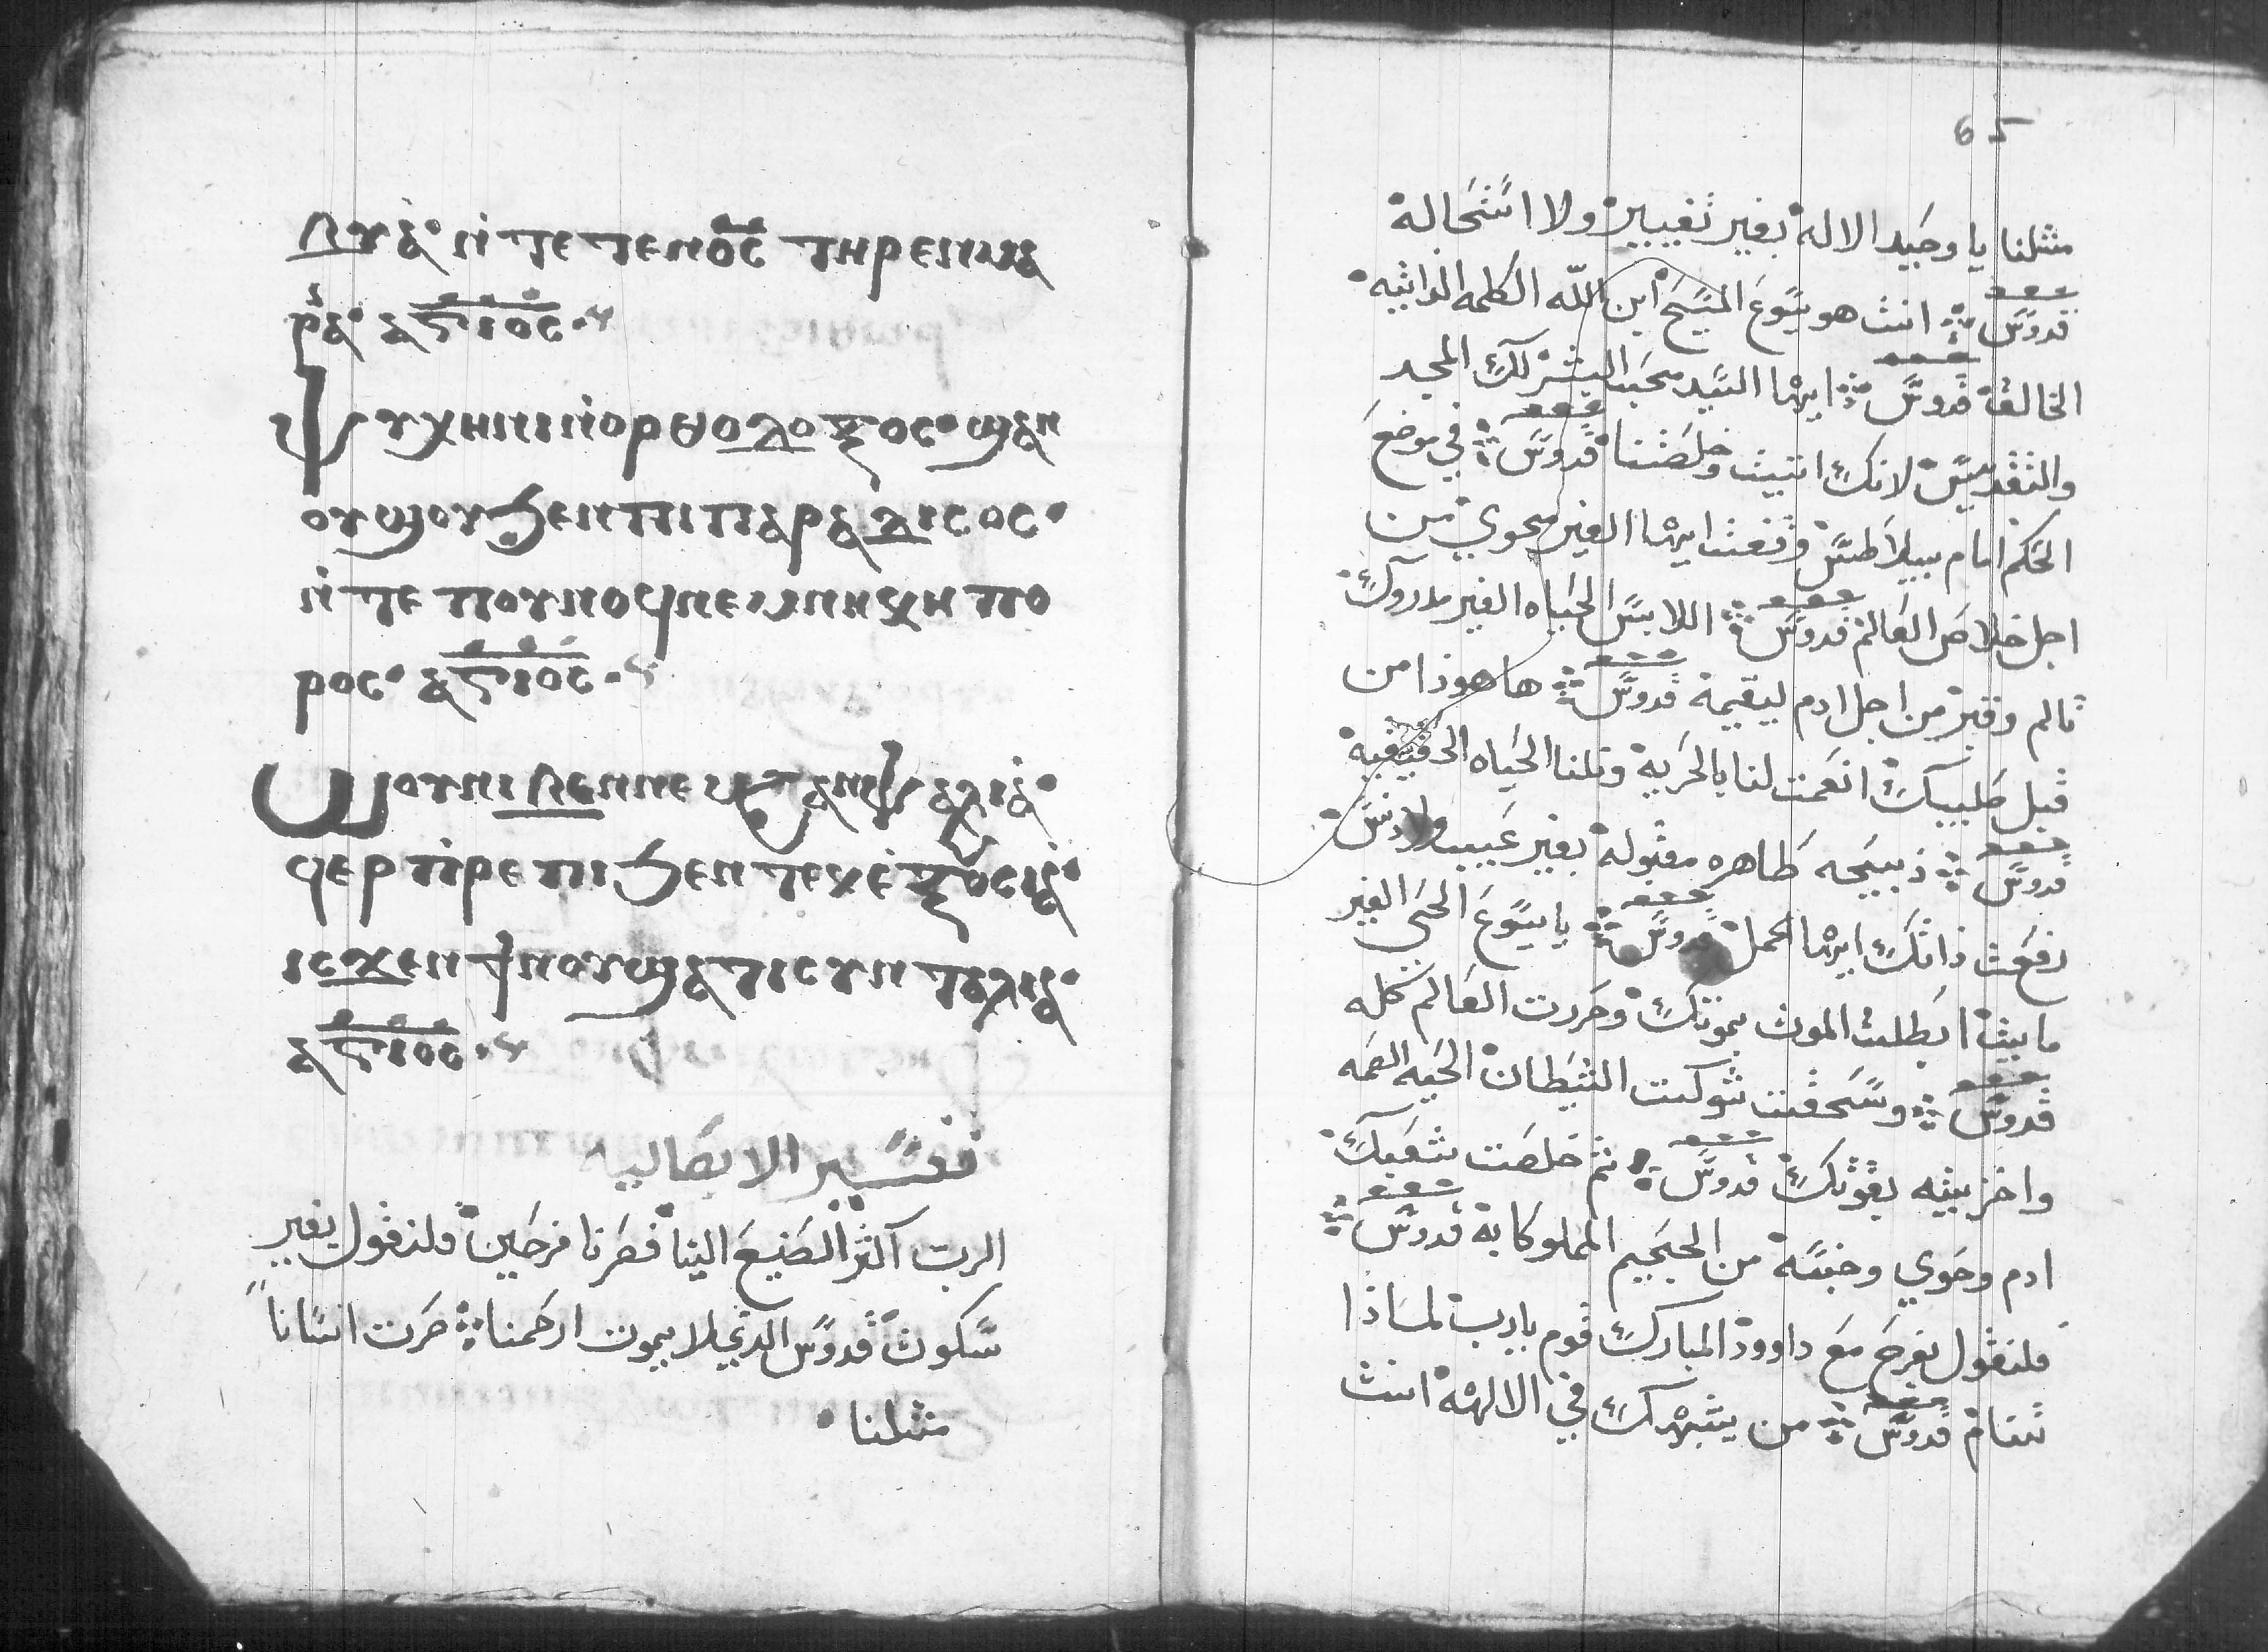 ⲗⲩⲁ̀· ⲛ̀ⲧⲉ ⲧⲉⲛⲟ̅ⲥ̅ ⲧⲏⲣⲉⲛⲙⲁ
ⲣⲓⲁ· ⲁⲅⲓⲟⲥ·
ⲯⲩⲭⲏ ⲛⲓⲛⲟⲣⲑⲟⲇⲟⲝⲟⲥ· ϣⲁⲛ
ⲟⲩϣⲟⲩ ϧⲉⲛ ⲡⲓⲡⲁⲣⲁⲇⲓⲥⲟⲥ·
ⲛ̀ⲧⲉ ⲡⲟⲩⲛⲟϥ ⲛⲉⲙ ⲡⲏⲭⲏ ⲡⲟ
ⲣⲟⲥ· ⲁⲅⲓⲟⲥ·
ϥⲉⲣ ⲡⲣⲉⲡⲓ ϧⲉⲛ ⲧⲉⲕⲉ̀ⲝⲟⲩⲥⲓⲁ̀·
ⲓⲥϫⲉⲛ ϯⲛⲟⲩ ϣⲁ ϯⲥⲩⲛⲧⲉⲗⲓⲁ̀·
ⲁⲅⲓⲟⲥ·
تفسير الابصاليه
الرب اكثر الصنيع الينا فصرنا فرحين فلنقول بغير
سكوت قدوس الدي لا يموت ارحمنا صرت انسانا
مثلنا
65
مثلنا يا وحيد الاله بغير تغيير ولا استحاله
قدوس انت هو يسوع المسيح ابن الله الكلمه الداتيه
الخالق قدوس ايها السيد محب البشر لك المجد
والتقديس لانك اتيت وخلصتنا قدوس في موضع
الحكم امام بيلاطس وقفت ايها الغير محوي من
اجل خلاص العالم قدوس اللابس الحياه الغير مدروك
تالم وقبر من اجل ادم ليقيمه قدوس ها هوذا من
قبل صليبك انعمت لنا بالحريه ونلنا الحياه الحقيقيه
قدوس ذبيحه طاهره مقبوله بغير عيب ولا دنس
رفعت ذاتك ايها الحمل قدوس يا يسوع الحي الغير
مايت ابطلت الموت بموتك وحررت العالم كله
قدوس وسحقت شوكت الشيطان الحيه
واخزيته بقوتك قدوس ثم خلصت شعبك
ادم وحوي وجنسه من الجحيم المملو كابه قدوس
فلنقول بفرح مع داوود المبارك قوم يارب لماذا
تنام قدوس من يشبهك في الالهه انت